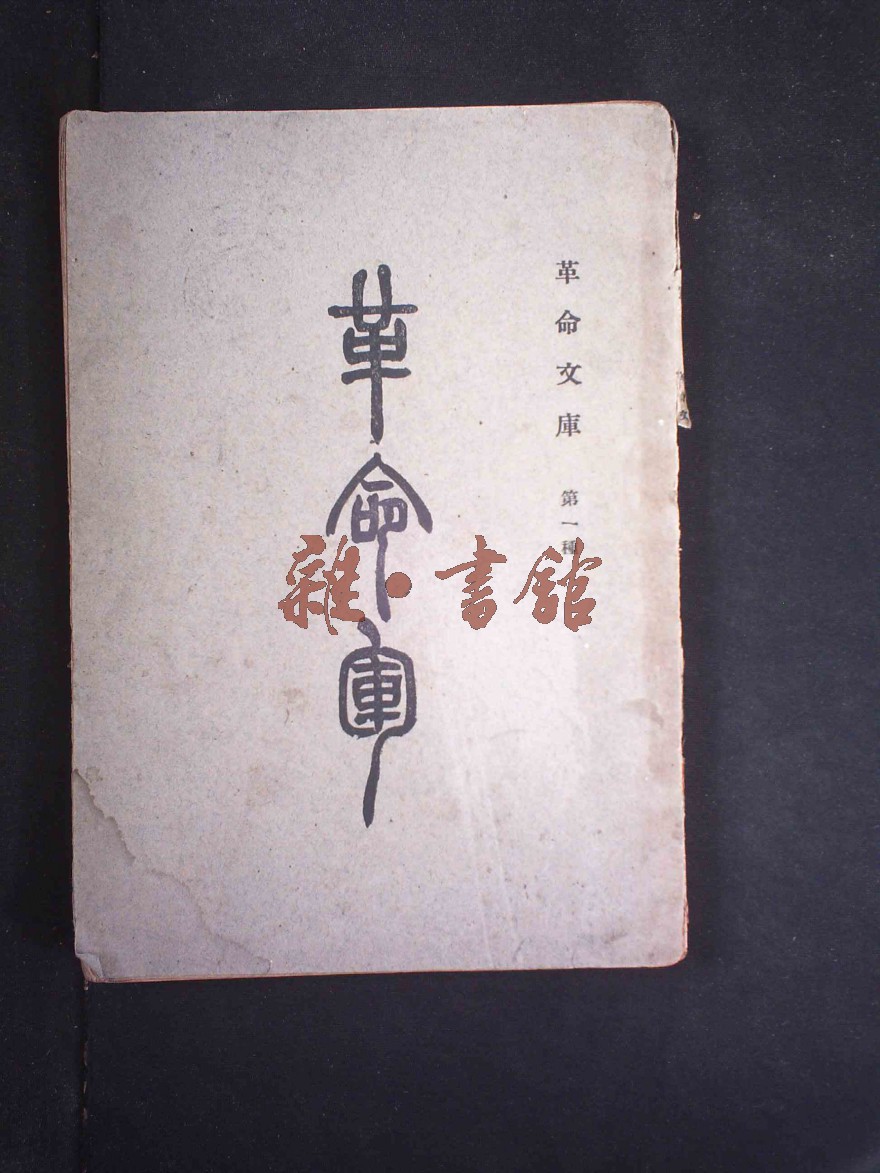 革命文庫 第一種
革命軍
雜·書館